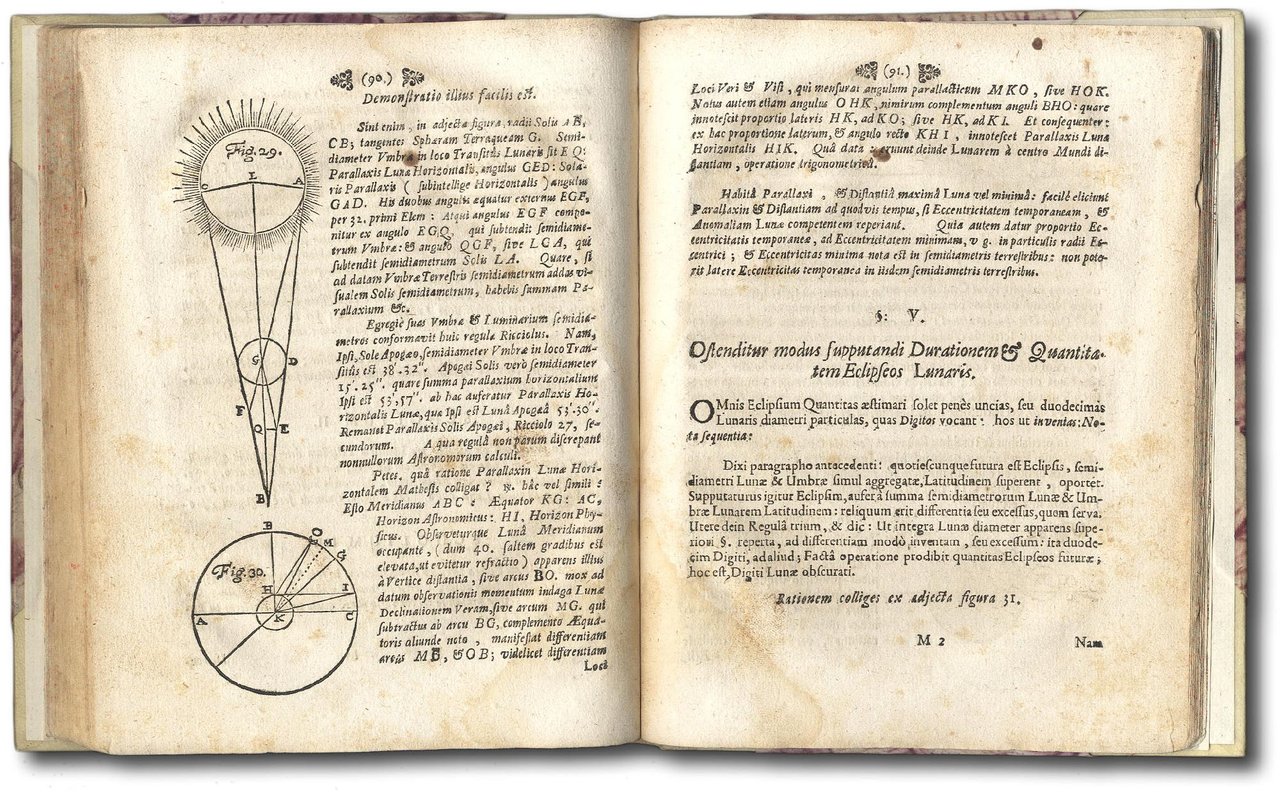 (90.)
Demonstratio illius facilis est.
Fig. 29.
L
C A
G D
F
Q E
B
Sint enim, in adjecta figura, radii Solis AB,
CB; tangentes Sphæram Terraqueam G. Semi-
diameter Vmbræ in loco Transitûs Lunaris sit EQ:
Parallaxis Lunæ Horizontalis, angulus GED: Sola-
ris Parallaxis ( subintellige Horizontalis ) angulus
GAD. His duobus angulis æquatur externus EGF,
per 32. primi Elem: Atqui angulus EGF compo-
nitur ex angulo EGQ, qui subtendit semidiame-
trum Vmbræ: & angulo QGF, sive LGA, qui
subtendit semidiametrum Solis LA. Quare, si
ad datam Vmbræ Terrestris semidiametrum addas vi-
sualem Solis semidiametrum, habebis summam Pa-
rallaxium &c.
Egregiè suas Vmbræ & Luminarium semidia-
metros conformavit huic regulæ Ricciolus. Nam,
Ipsi, Sole Apogæo, semidiameter Vmbræ in loco Tran-
sitûs est 38'. 32''. Apogæi Solis verò semidiameter
15'. 25''. quare summa parallaxium horizontalium
Ipsi est 53'. 57''. ab hac auferatur Parallaxis Ho-
rizontalis Lunæ, quæ Ipsi est Lunâ Apogæâ 53'. 30''.
Remanet Parallaxis Solis Apogæi, Ricciolo 27, se-
cundorum. A qua regulâ non parum discrepant
nonnullorum Astronomorum calculi.
Petes, quâ ratione Parallaxin Lunæ Hori-
zontalem Mathesis colligat? ℞. hâc vel simili:
Esto Meridianus ABC: Æquator KG: AC,
Horizon Astronomicus: HI, Horizon Phy-
sicus. Observeturque Lunâ Meridianum
occupante, ( dum 40. saltem gradibus est
elevata, ut evitetur refractio ) apparens illius
à Vertice distantia, sive arcus BO. mox ad
datum observationis momentum indaga Lunæ
Declinationem Veram, sive arcum MG. qui
subtractus ab arcu BG, complemento Æqua-
toris aliunde noto, manifestat differentiam
arcûs MB, & OB; videlicet differentiam
Loci
Fig. 30.
B
O M
G
H I
A K C
(91.)
Loci Veri & Visi, qui mensurat angulum parallacticum MKO, sive HOK.
Notus autem etiam angulus OHK, nimirum complementum anguli BHO: quare
innotescit proportio lateris HK, ad KO; sive HK, ad KI. Et consequenter:
ex hac proportione laterum, & angulo recto KHI, innotescet Parallaxis Lunæ
Horizontalis HIK. Quâ data: eruunt deinde Lunarem à centro Mundi di-
stantiam, operatione trigonometricâ.
Habitâ Parallaxi, & Distantiâ maximâ Lunæ vel minimâ: facilè eliciunt
Parallaxin & Distantiam ad quodvis tempus, si Eccentricitatem temporaneam, &
Anomaliam Lunæ competentem reperiant. Quia autem datur proportio Ec-
centricitatis temporaneæ, ad Eccentricitatem minimam, v g. in particulis radii Ec-
centrici; & Eccentricitas minima nota est in semidiametris terrestribus: non pote-
rit latere Eccentricitas temporanea in iisdem semidiametris terrestribus.
§: V.
Ostenditur modus supputandi Durationem & Quantita-
tem Eclipseos Lunaris.
OMnis Eclipsium Quantitas æstimari solet penès uncias, seu duodecimas
Lunaris diametri particulas, quas Digitos vocant: hos ut invenias: No-
ta sequentia:
Dixi paragrapho antecedenti: quotiescunque futura est Eclipsis, semi-
diametri Lunæ & Umbræ simul aggregatæ, Latitudinem superent, oportet.
Supputaturus igitur Eclipsim, aufer à summa semidiametrorum Lunæ & Um-
bræ Lunarem Latitudinem: reliquum erit differentia seu excessus, quem serva.
Utere dein Regulâ trium, & dic: Ut integra Lunæ diameter apparens supe-
riori §. reperta, ad differentiam modò inventam, seu excessum: ita duode-
cim Digiti, ad aliud; Factâ operatione prodibit quantitas Eclipseos futuræ;
hoc est, Digiti Lunæ obscurati.
Rationem colliges ex adjecta figura 31.
M 2 Nam